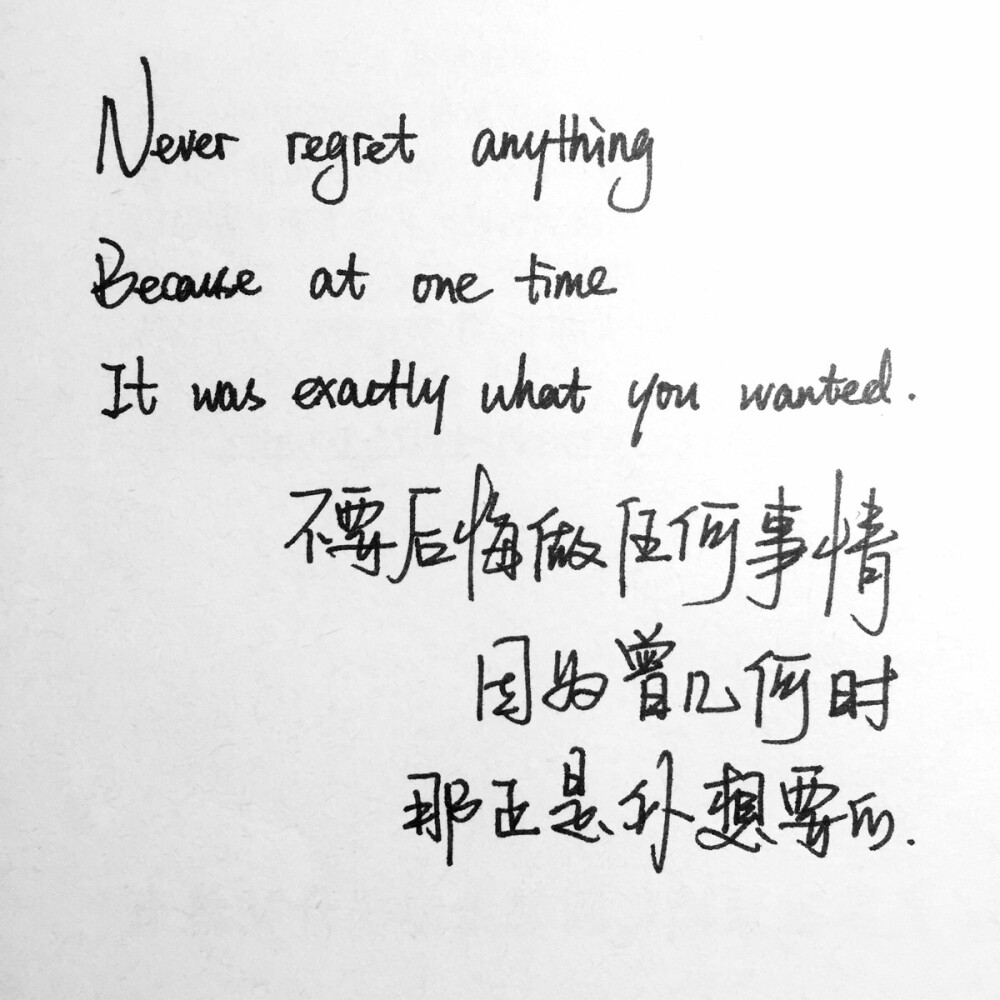 Never regret anything
Because at one time
It was exactly what you wanted.
不要后悔做任何事情
因为曾几何时
那正是你想要的.